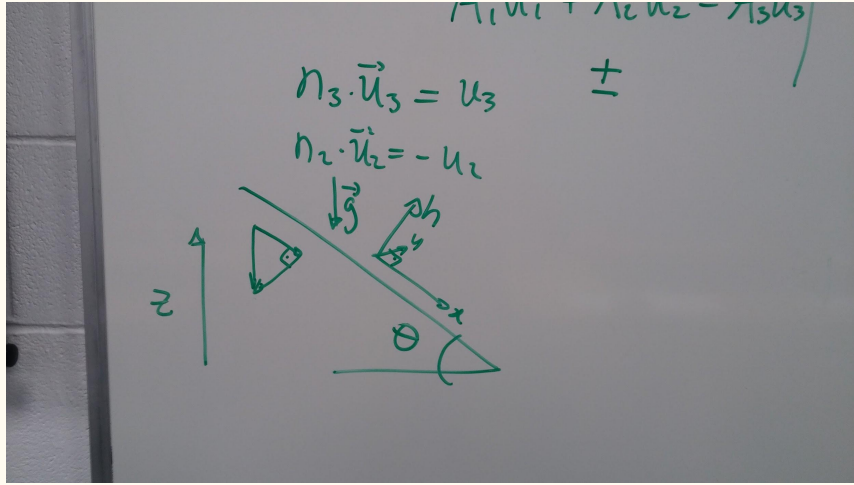 A₁u₁ + A₂u₂ - A₃u₃
±
n₃·u⃗₃ = u₃
n₂·u⃗₂ = - u₂
g⃗
h
y
z
x
θ